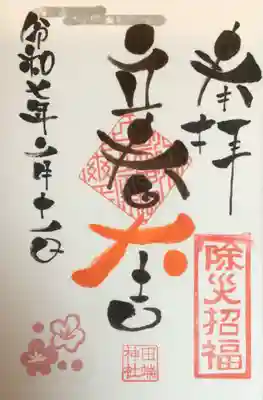 奉拝
除災招福
立春大吉
田端
神社
令和七年二月十一日